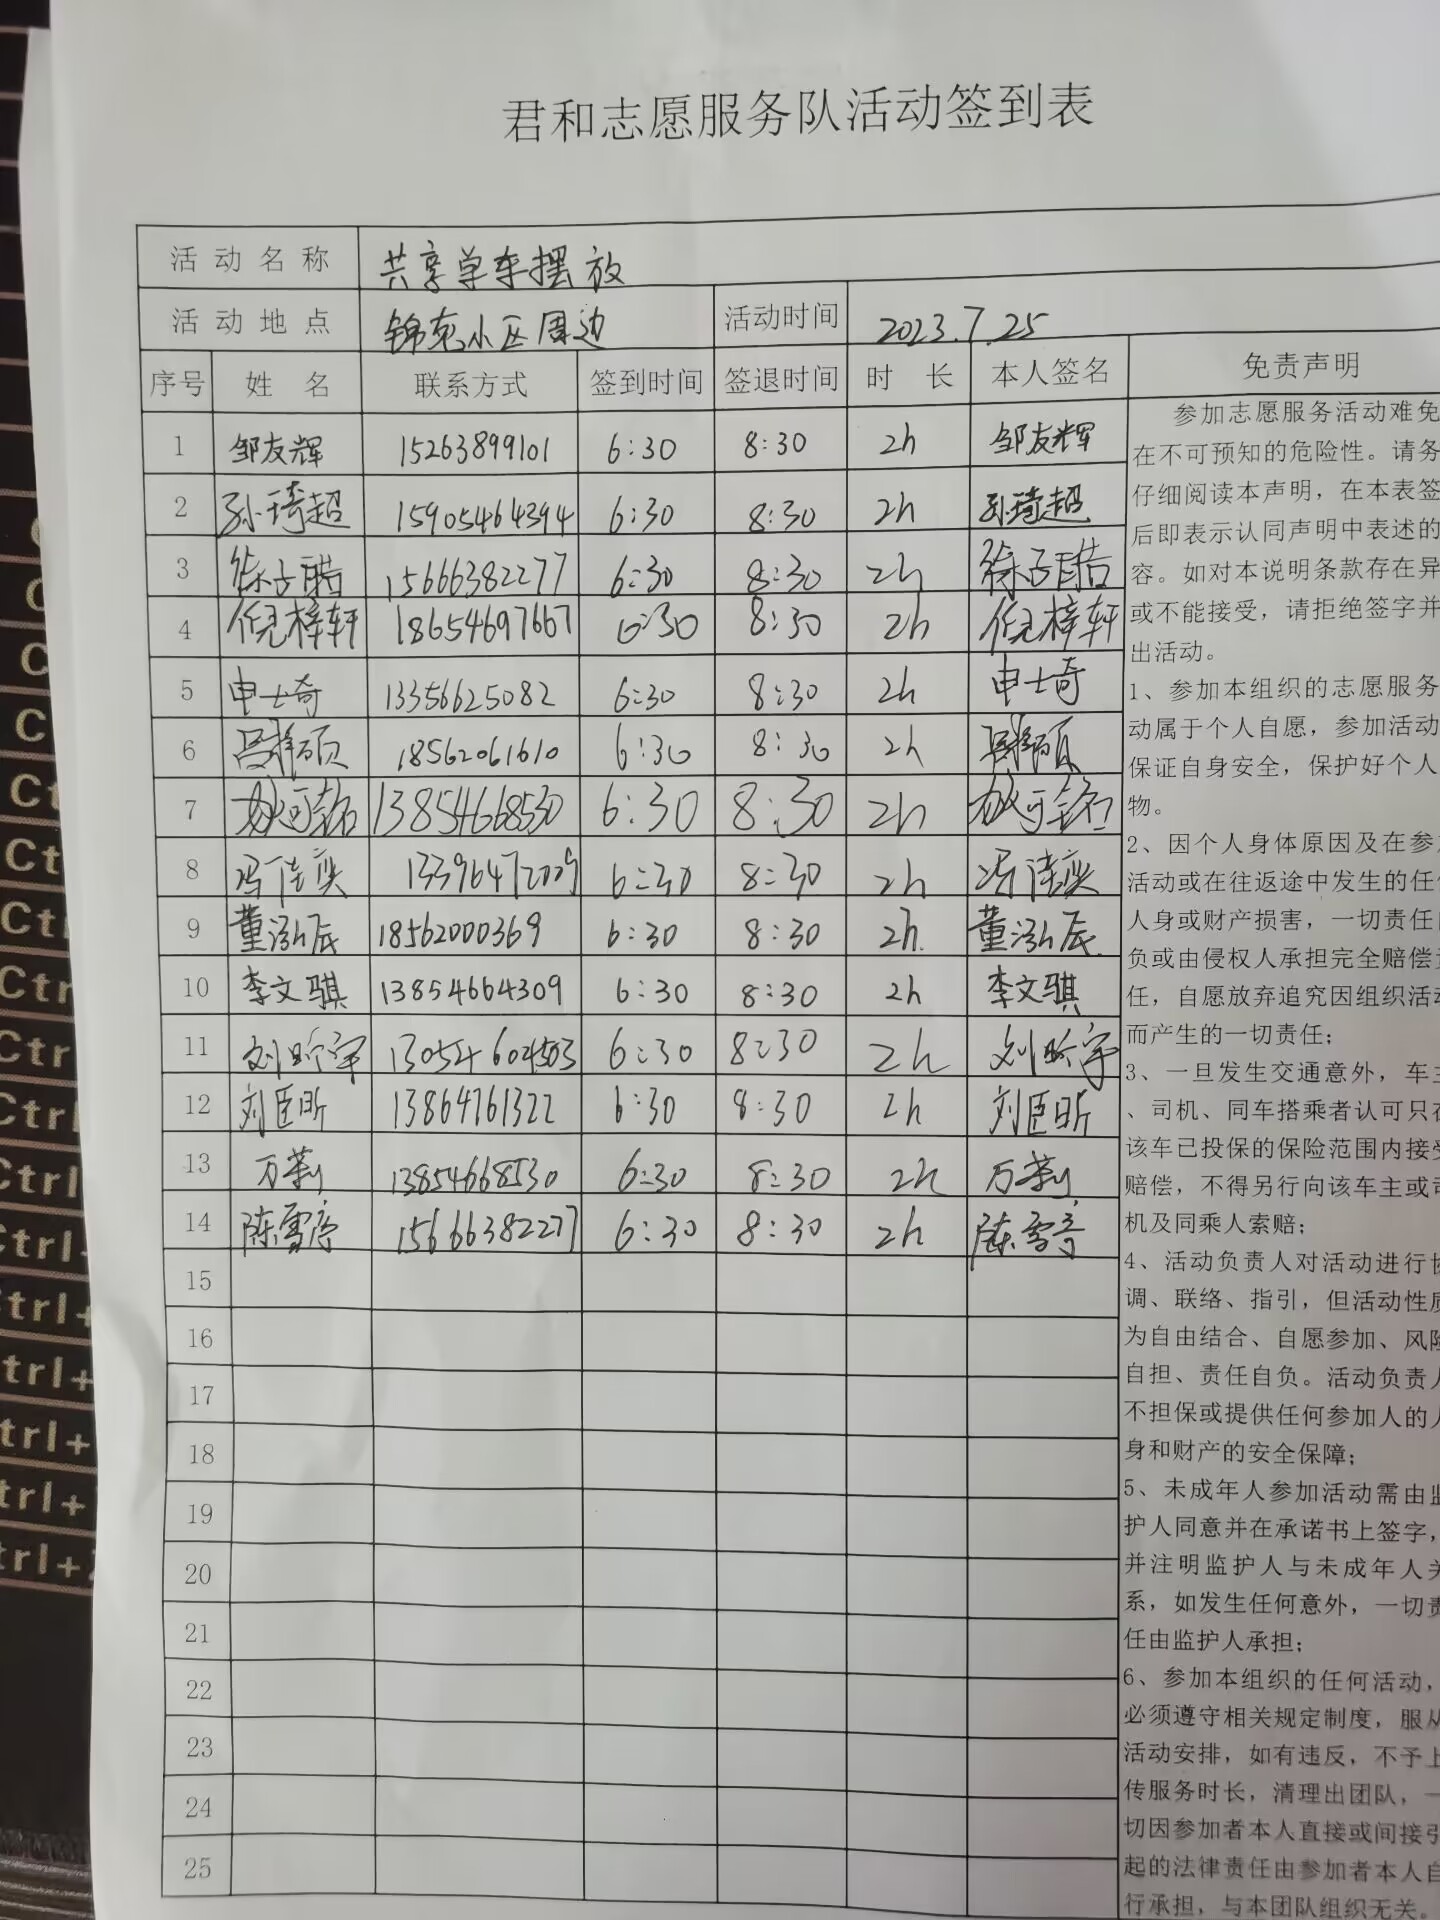 君和志愿服务队活动签到表
活动名称 共享单车摆放
活动地点 锦苑小区周边 活动时间 2023.7.25
序号 姓名 联系方式 签到时间 签退时间 时长 本人签名 免责声明
1 邹友辉 15263899101 6:30 8:30 2h 邹友辉
2 孙琦超 15905464394 6:30 8:30 2h 孙琦超
3 徐子皓 15666382277 6:30 8:30 2h 徐子皓
4 任梓轩 18654697667 6:30 8:30 2h 任梓轩
5 申士奇 13356625082 6:30 8:30 2h 申士奇
6 18562061610 6:30 8:30 2h
7 13854668530 6:30 8:30 2h
8 冯佳奕 13396472009 6:30 8:30 2h 冯佳奕
9 董泓辰 18562000369 6:30 8:30 2h. 董泓辰
10 李文骐 13854664309 6:30 8:30 2h 李文骐
11 刘昤宇 6:30 8:30 2h 刘昤宇
12 刘臣昕 13864761322 6:30 8:30 2h 刘臣昕
13 万莉 13854668530 6:30 8:30 2h 万莉
14 陈雪亭 15666382277 6:30 8:30 2h 陈雪亭
15
16
17
18
19
20
21
22
23
24
25
参加志愿服务活动难免
在不可预知的危险性。请务
仔细阅读本声明，在本表签
后即表示认同声明中表述的
容。如对本说明条款存在异
或不能接受，请拒绝签字并
出活动。
1、参加本组织的志愿服务
动属于个人自愿，参加活动
保证自身安全，保护好个人
物。
2、因个人身体原因及在参
活动或在往返途中发生的任
人身或财产损害，一切责任
负或由侵权人承担完全赔偿
任，自愿放弃追究因组织活动
而产生的一切责任；
3、一旦发生交通意外，车主
、司机、同车搭乘者认可只在
该车已投保的保险范围内接受
赔偿，不得另行向该车主或司
机及同乘人索赔；
4、活动负责人对活动进行协
调、联络、指引，但活动性质
为自由结合、自愿参加、风险
自担、责任自负。活动负责人
不担保或提供任何参加人的人
身和财产的安全保障；
5、未成年人参加活动需由监
护人同意并在承诺书上签字，
并注明监护人与未成年人关
系，如发生任何意外，一切责
任由监护人承担；
6、参加本组织的任何活动，
必须遵守相关规定制度，服从
活动安排，如有违反，不予上
传服务时长，清理出团队，一
切因参加者本人直接或间接引
起的法律责任由参加者本人自
行承担，与本团队组织无关。
Ctrl+
Ctrl+